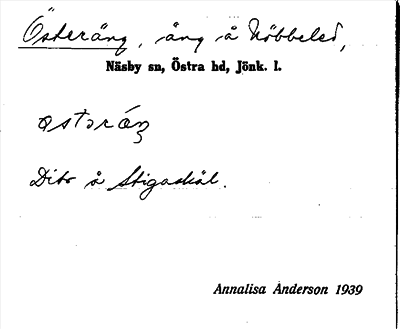 Österäng, äng å Nöbbeled,
Näsby sn, Östra hd, Jönk. l.
Dito å Stigaskäl.
Annalisa Anderson 1939